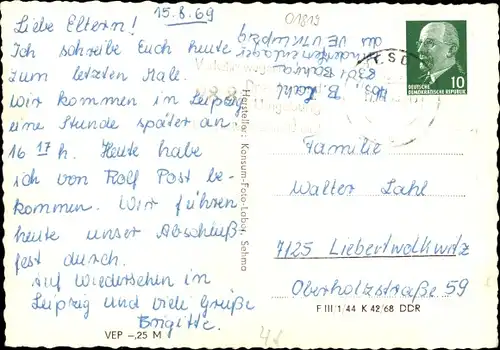 15.8.69
Liebe Eltern!
Ich schreibe Euch heute
zum letzten Male.
Wir kommen in Leipzig
eine Stunde später an
16 17 h. Heute habe
ich von Rolf Post be-
kommen. Wir führen
heute unser Abschluß-
fest durch.
Auf Wiedersehen in
Leipzig und viele Grüße
Brigitte.
VEP -,25 M
Hersteller: Konsum-Foto-Labor, Sehma
01819
Abs. B. Lahl
8301 Bahra
Kinderferienlager
10
DEUTSCHE
DEMOKRATISCHE REPUBLIK
Familie
Walter Lahl
7125 Liebertwolkwitz
Oberholzstraße 59
F III 1/44 K 42/68 DDR